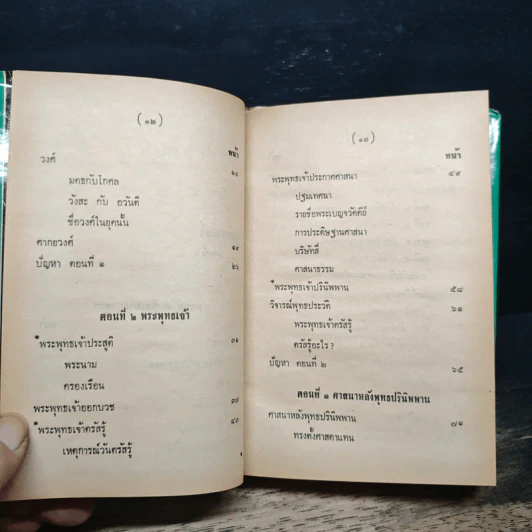 (๑๒)
หน้า
วงศ์ ๑๔
มคธกับโกศล
วังสะ กับ อวันตี
ชื่อวงศ์ในยุคนั้น
ศากยวงศ์ ๑๙
ปัญหา ตอนที่ ๑ ๒๖
ตอนที่ ๒ พระพุทธเจ้า
*พระพุทธเจ้าประสูติ ๓๑
พระนาม
ครองเรือน
พระพุทธเจ้าออกบวช ๓๗
*พระพุทธเจ้าตรัสรู้ ๔๓
เหตุการณ์วันตรัสรู้
(๑๓)
หน้า
พระพุทธเจ้าประกาศศาสนา ๔๙
ปฐมเทศนา
รายชื่อพระเบญจวัคคีย์
การประดิษฐานศาสนา
บริษัทสี่
ศาสนธรรม
*พระพุทธเจ้าปรินิพพาน ๕๘
วิจารณ์พุทธประวัติ ๖๑
พระพุทธเจ้าตรัสรู้
ตรัสรู้อะไร?
ปัญหา ตอนที่ ๒ ๖๕
ตอนที่ ๓ ศาสนาหลังพุทธปรินิพพาน
ศาสนาหลังพุทธปรินิพพาน ๗๑
ทรงตั้งศาสดาแทน